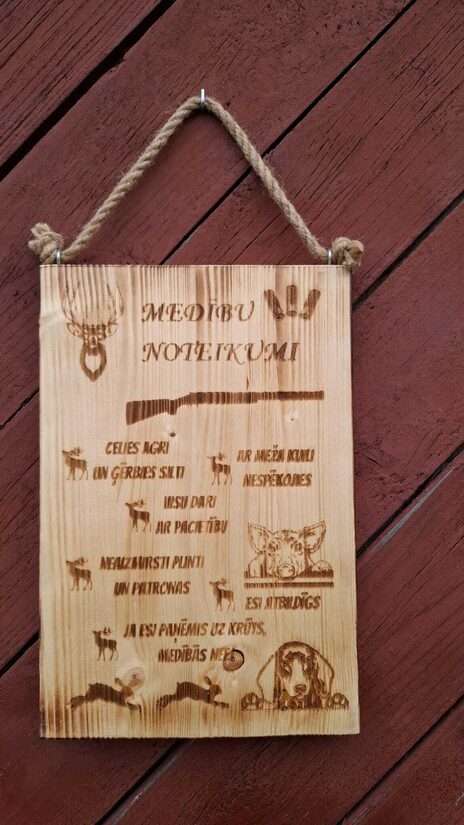 MEDĪBU
NOTEIKUMI
CELIES AGRI
UN ĢĒRBIES SILTI
AR MEŽA KUILI
NESPĒKOJIES
VISU DARI
AR PACIETĪBU
NEAIZMIRSTI PLINTI
UN PATRONAS
ESI ATBILDĪGS
JA ESI PAŅĒMIS UZ KRŪTS,
MEDĪBĀS NEEJ